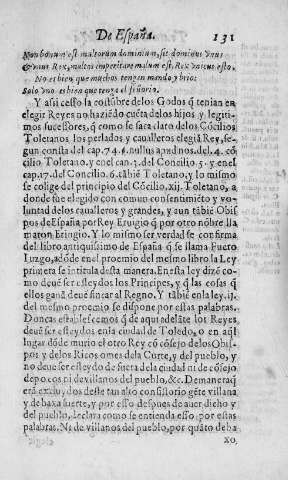 De España. 131
Non bonum est multorum dominium, sit dominus vnus
vnus Rex, multos imperitare malum est. Rex vnicus esto.
No es bien que muchos tengan mando y brio:
Solo vno es bien que tenga el señorio.
Y assi cesso la costũbre delos Godos q̃ tenian en
elegir Reyes no haziẽdo cuẽta delos hijos y legiti-
mos sucessores, q̃ como se saca claro delos Cõcilios
Toletanos los perlados y caualleros elegiã Rey, se-
gun consta del cap. 74 6. nullus apud nos. del. 4. cõ-
cilio Toletano, y enel can. 3. del Concilio. 5. y enel
cap. 17. del Concilio. 6. tãbiẽ Toletano, y lo mismo
se colige del principio del Cõcilio. xij. Toletano, a
donde fue elegido con comun consentimiẽto y vo-
luntad delos caualleros y grandes, y aun tãbiẽ Obis
pos de España por Rey Erugio q̃ por otro nõbre lla
maron Eruigio. Y lo mismo ser verdad se con firma
del libro antiquissimo de España q̃ se llama Fuero
Iuzgo, adõde enel proemio del mismo libro la Ley
primera se intitula desta manera. En esta ley dizẽ co-
mo deuẽ ser esleydos los Principes, y q̃ las cosas q̃
ellos ganã deuẽ fincar al Regno. Y tãbiẽ enla ley. ij.
del mesmo proemio se dispone por estas palabras.
Doncas establescemos q̃ de aqui adelãte los Reyes,
deuẽ ser esleydos enla ciudad de Toledo, o en aq̃l
lugar dõde murio el otro Rey cõ cõsejo delos Obis-
pos y delos Ricos omes dela Corte, y del pueblo, y
no deue ser esleydo de fuera dela ciudad ni de cõsejo
de pocos ni de villanos del pueblo, &c. De maneraq̃
erã excluydos deste tan alto consistorio gẽte villana
y de baxa suerte, y por esso despues de auer dicho y
del pueblo, declara como se entienda esso por estas
palabras. Ni de villanos del pueblo, por quãto deba
xo,